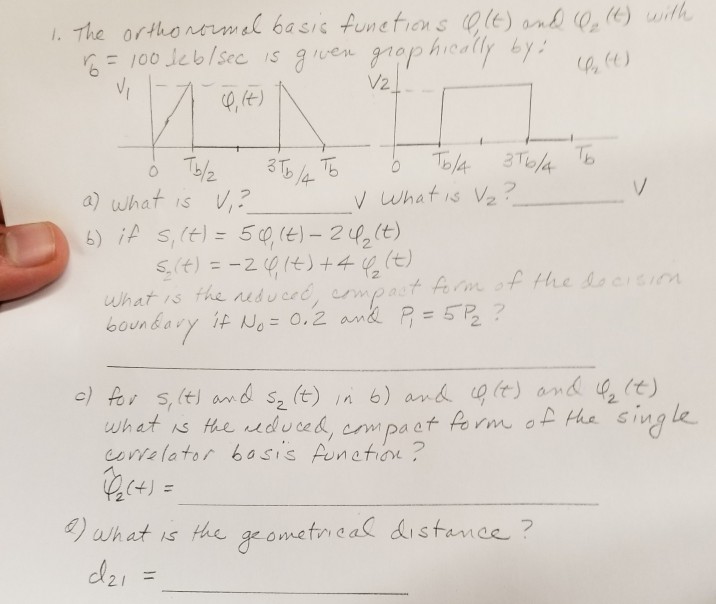 1. The orthonormal basis functions φ₁(t) and φ₂(t) with
r_b = 100 deb/sec is given graphically by:
φ₂(t)
V₁
φ₁(t)
V₂
0 Tb/2 3Tb/4 Tb
0 Tb/4 3Tb/4 Tb
a) What is V₁? ________ V What is V₂? ________ V
b) if s₁(t) = 5φ₁(t) – 2φ₂(t)
s₂(t) = –2φ₁(t) + 4φ₂(t)
What is the reduced, compact form of the decision
boundary if N₀ = 0.2 and P₁ = 5P₂ ?
c) for s₁(t) and s₂(t) in b) and φ₁(t) and φ₂(t)
what is the reduced, compact form of the single
correlator basis function?
φ̂₂(t) =
d) What is the geometrical distance?
d₂₁ =